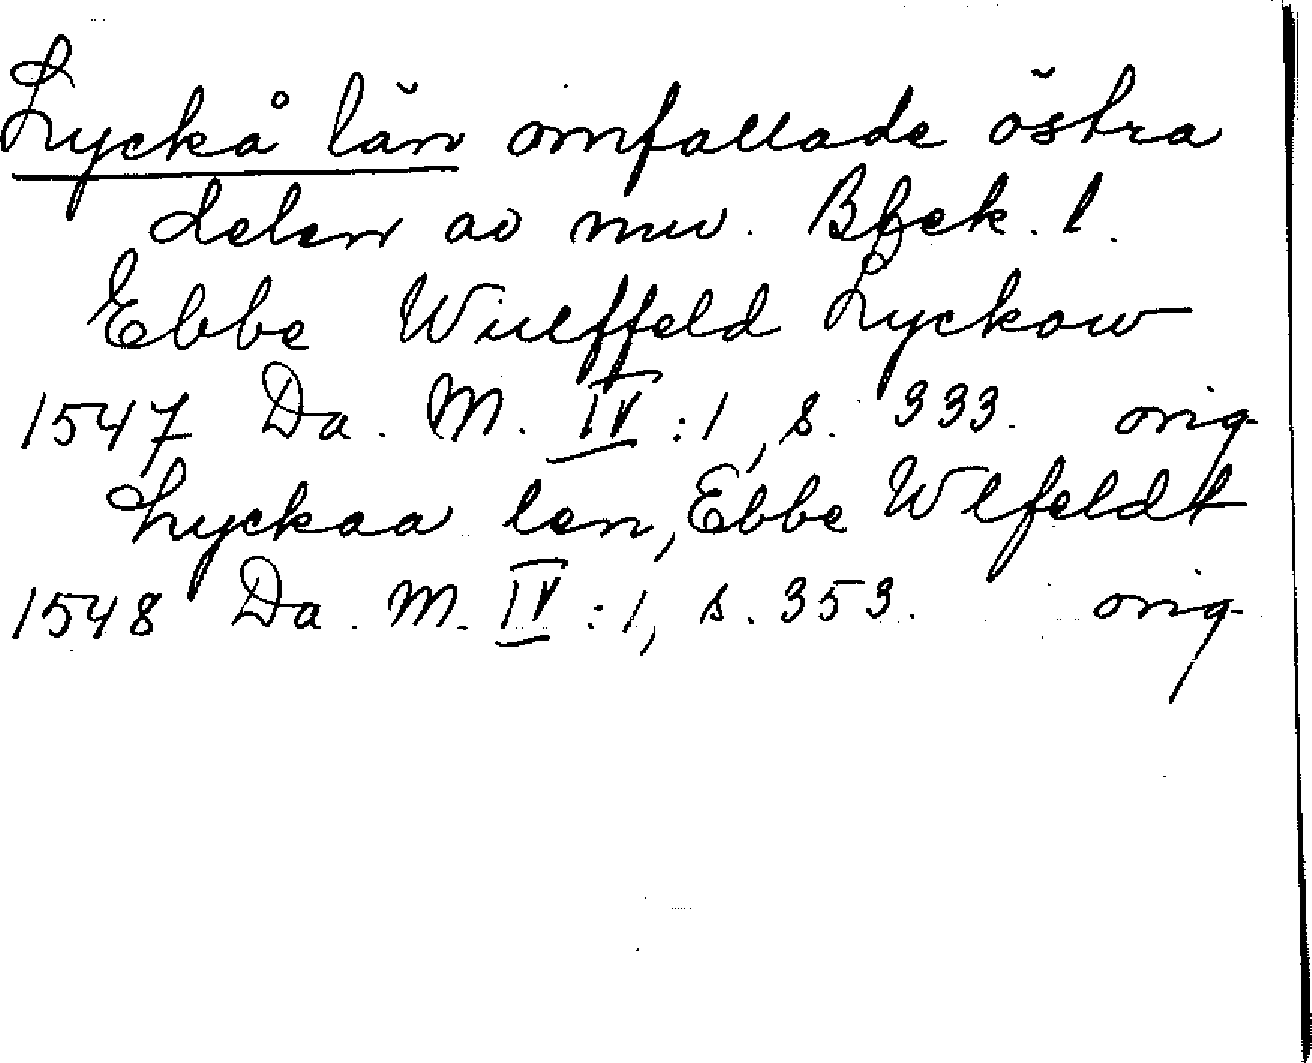 Lyckå län omfattade östra
delen av nuv. Blek. l.
Ebbe Wulffeld Lyckow
1547 Da. M. IV:1, s. 333. orig
Lyckaa len, Ebbe Wlfeldt
1548 Da. M. IV:1, s. 353. orig